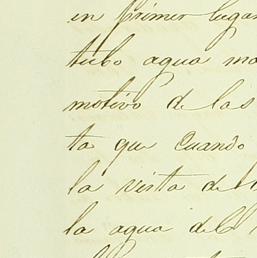 en primer lugar
tubo agua
motivo de las
ta que cuando
la vista de
la agua del